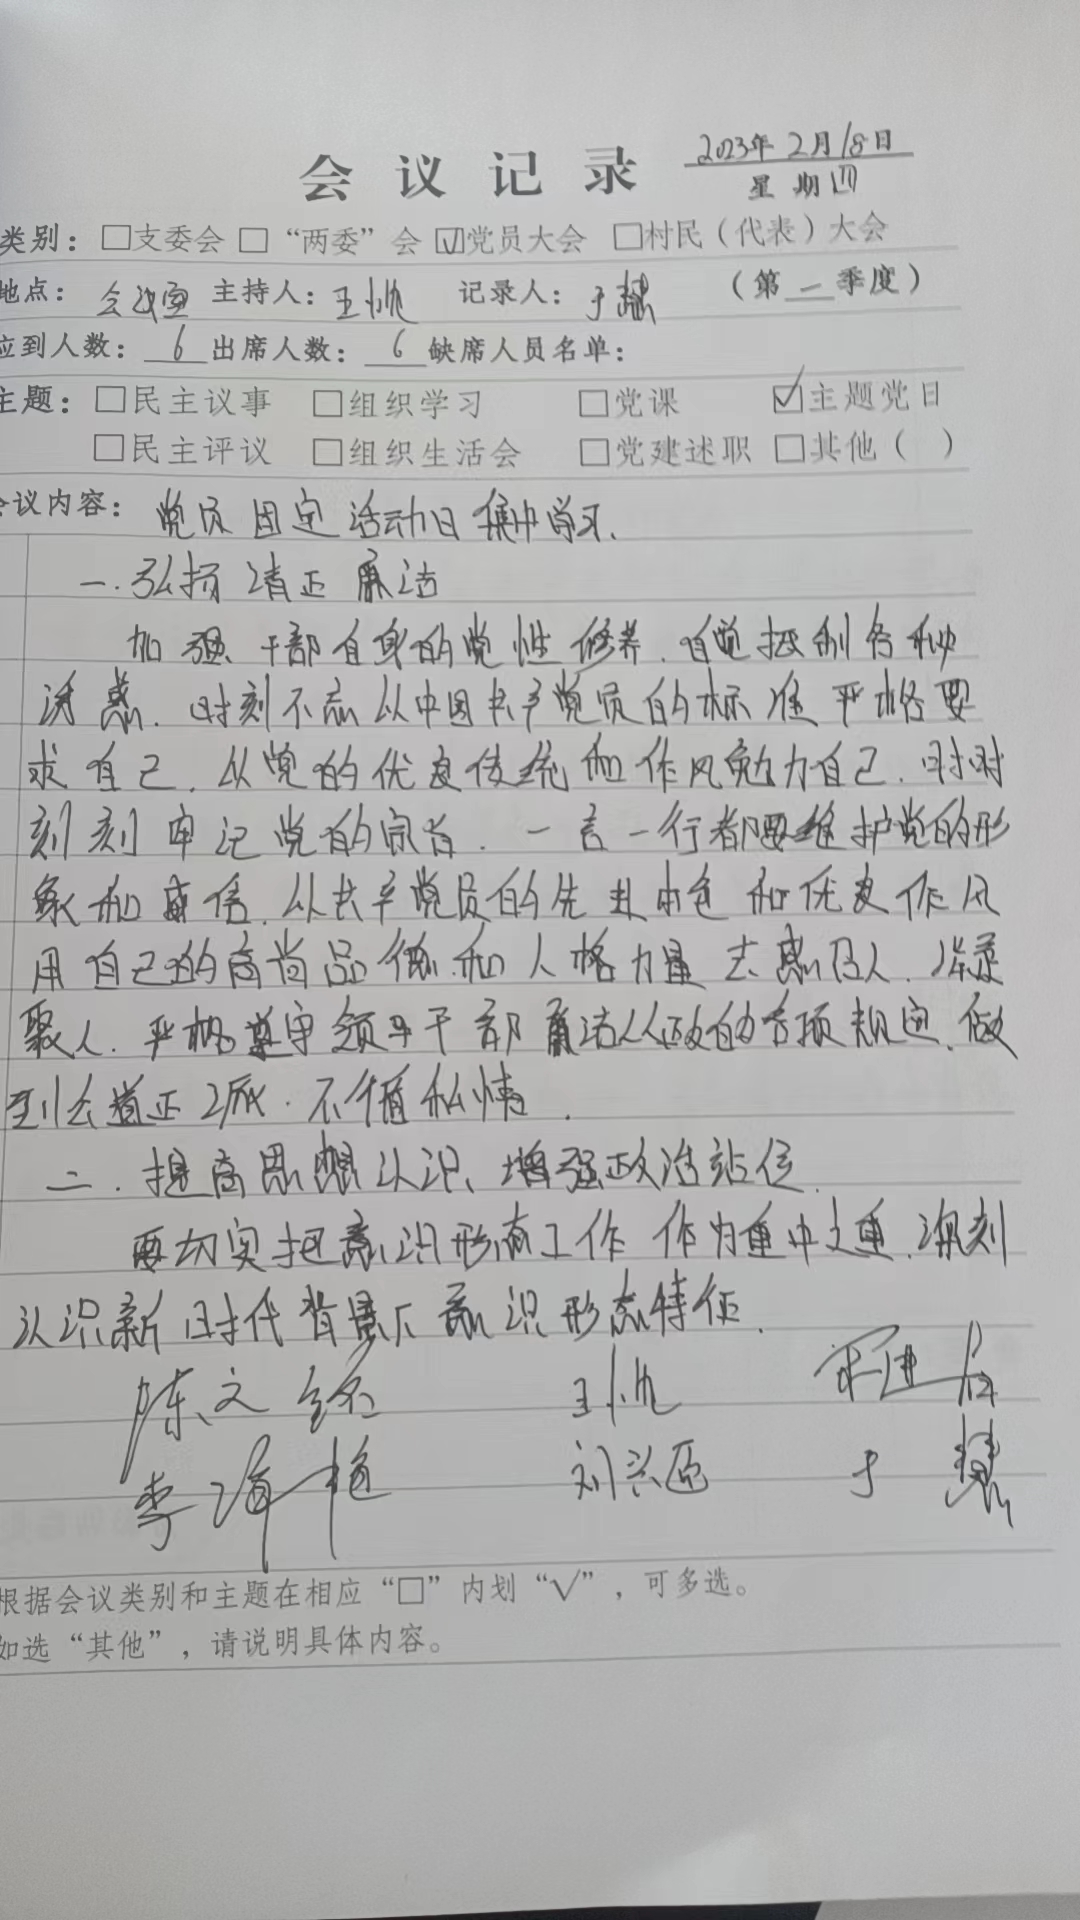 会议记录 2023年2月18日
星期四
类别：□支委会 □“两委”会 ☑党员大会 □村民（代表）大会
地点：会议室 主持人：王帆 记录人：于慧 （第一季度）
应到人数：6 出席人数：6 缺席人员名单：
主题：□民主议事 □组织学习 □党课 ☑主题党日
□民主评议 □组织生活会 □党建述职 □其他（ ）
会议内容：党员固定活动日集中学习.
一.弘扬清正廉洁
加强干部自身的党性修养.自觉抵制各种
诱惑.时刻不忘从中国共产党员的标准严格要
求自己.从党的优良传统和作风勉力自己.时时
刻刻牢记党的宗旨.一言一行都要维护党的形
象和威信.从共产党员的先进本色和优良作风
用自己的高尚品德和人格力量去感召人.凝
聚人.严格遵守领导干部廉洁从政的各项规定.做
到公道正派.不循私情.
二.提高思想认识、增强政治站位.
要切实把意识形态工作作为重中之重.深刻
认识新时代背景下意识形态特征.
陈文 王帆
李 刘兴 于慧
根据会议类别和主题在相应“□”内划“√”，可多选。
如选“其他”，请说明具体内容。